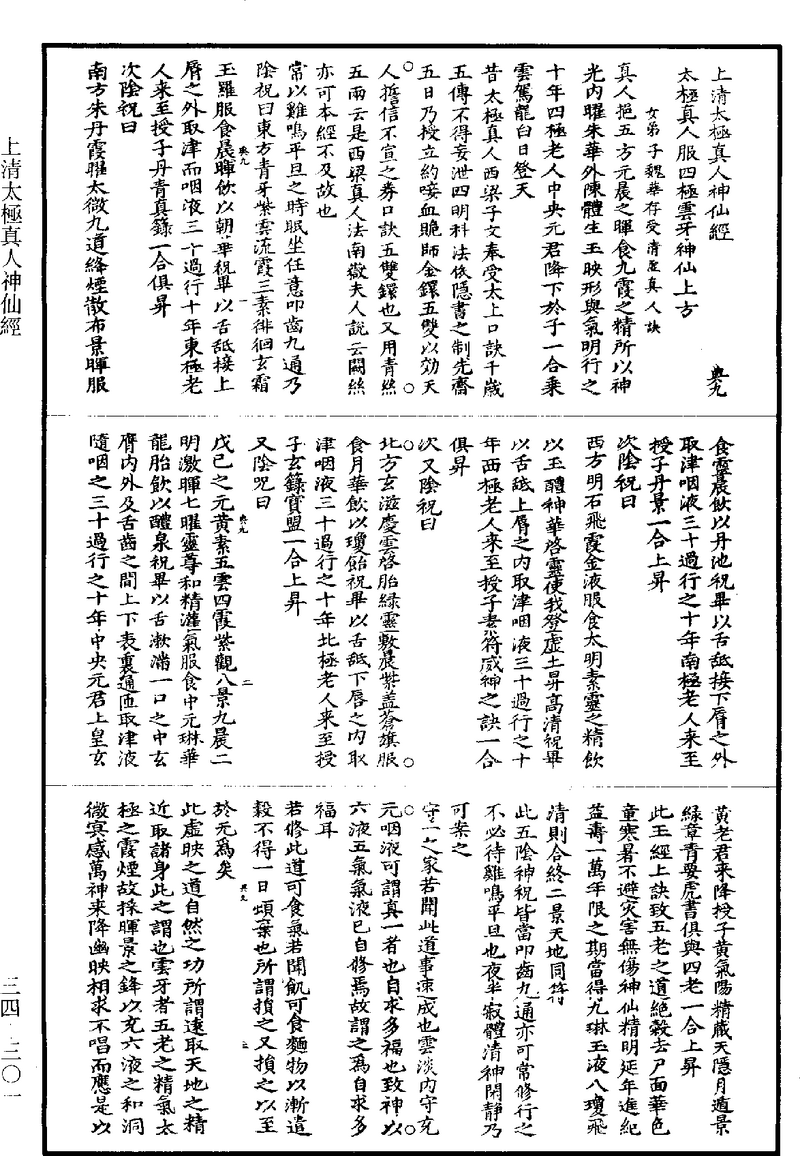 上清太極真人神仙經
太極真人服四極雲牙神仙上方 典九
女弟子魏華存受清虛真人訣
真人挹五方元晨之暉食九霞之精所以神
光內曜朱華外陳體生玉映形與氣明行之
十年四極老人中央元君降下於子一合乘
雲駕龍白日登天
昔太極真人西梁子文奉受太上口訣千歲
五傳不得妄泄四明科法依隱書之制先齋
五日乃授立約唼血跪師金鐶五雙以効天
人誓信不宣之券口訣五雙鐶也又用青絲
五兩云是西梁真人法南嶽夫人說云闕絲
亦可本經不及故也
常以雞鳴平旦之時眠坐任意叩齒九通乃
陰祝曰東方青牙紫雲流霞三素徘徊玄霜
玉羅服食晨暉飲以朝華祝畢以舌舐接上
脣之外取津而咽液三十過行十年東極老
人來至授子丹青真籙一合俱昇
次陰祝曰
南方朱丹霞曜太微九道絳煙散布景暉服
食靈晨飲以丹池祝畢以舌舐接下脣之外
取津咽液三十過行之十年南極老人來至
授子丹景一合上昇
次陰祝曰
西方明石飛霞金液服食太明素靈之精飲
以玉醴神華啓靈使我登虛上昇高清祝畢
以舌舐上脣之內取津咽液三十過行之十
年西極老人來至授子素符威神之訣一合
俱昇
次又陰祝曰
北方玄滋慶雲啓胎綠靈敷晨紫蓋蒼旗服
食月華飲以瓊飴祝畢以舌舐下唇之內取
津咽液三十過行之十年北極老人來至授
子玄籙寶盟一合上昇
又陰咒曰
戊己之元黃素五雲四霞紫觀八景九晨二
明激暉七曜靈尊和精灌氣服食中元琳華
龍胎飲以醴泉祝畢以舌漱滿一口之中玄
膺內外及舌齒之間上下表裏通匝取津液
隨咽之三十過行之十年中央元君上皇玄
黃老君來降授子黃氣陽精藏天隱月遁景
綠章青要虎書俱與四老一合上昇
此玉經上訣致五老之道絕穀去尸面華色
童寒暑不避灾害無傷神仙精明延年進紀
益壽一萬年限之期當得九琳玉液八瓊飛
清則合終二景天地同符
此五陰神祝皆當叩齒九通亦可常修行之
不必待雞鳴平旦也夜半寂體清神閑靜乃
可案之
守一之家若聞此道事速成也雲淡內守充
元咽液可謂真一者也自求多福也致神以
六液五氣氣液已自修焉故謂之爲自求多
福耳
若修此道可食氣若聞飢可食麵物以漸遣
穀不得一日頓棄也所謂損之又損之以至
於元爲矣
此虛映之道自然之功所謂遠取天地之精
近取諸身此之謂也雲牙者五老之精氣太
極之霞煙故採暉景之鋒以充六液之和洞
微㝠感萬神來降幽映相求不唱而應是以
上清太極真人神仙經
三四·三〇一